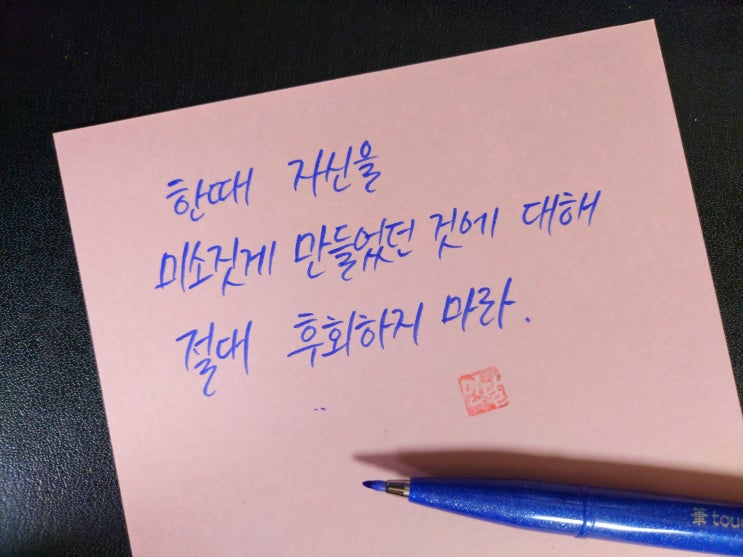 한때 자신을
미소짓게 만들었던 것에 대해
절대 후회하지 마라.
筆 touc